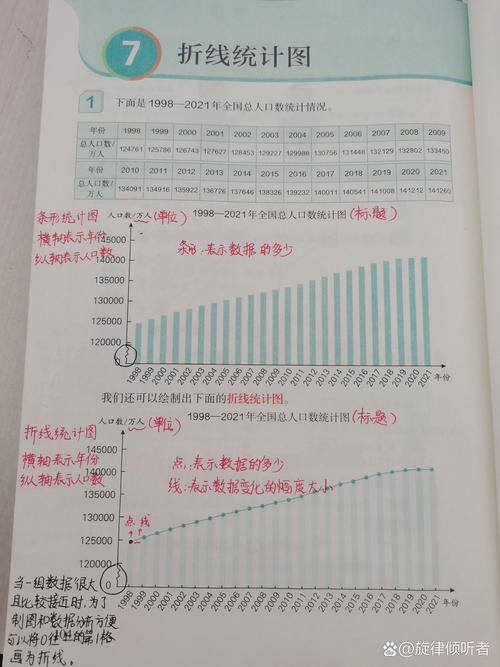 7 折线统计图
1 下面是1998—2021年全国总人口数统计情况。
年份 1998 1999 2000 2001 2002 2003 2004 2005 2006 2007 2008 2009
总人口数/万人 124761 125786 126743 127627 128453 129227 129988 130756 131448 132129 132802 133450
年份 2010 2011 2012 2013 2014 2015 2016 2017 2018 2019 2020 2021
总人口数/万人 134091 134916 135922 136726 137646 138326 139232 140011 140541 141008 141212 141260
条形统计图
横轴表示年份
纵轴表示人口数
人口数/万人(单位)
1998—2021年全国总人口数统计图(标题)
条形:表示数据的多少
145000
140000
135000
130000
125000
120000
0
1998 1999 2000 2001 2002 2003 2004 2005 2006 2007 2008 2009 2010 2011 2012 2013 2014 2015 2016 2017 2018 2019 2020 2021 年份
我们还可以绘制出下面的折线统计图。
折线统计图
横轴表示年份
纵轴表示人口数
人口数/万人(单位)
1998—2021年全国总人口数统计图(标题)
点:表示数据的多少
线:表示数据变化的幅度大小
145000
140000
135000
130000
125000
120000
0
点 线
1998 1999 2000 2001 2002 2003 2004 2005 2006 2007 2008 2009 2010 2011 2012 2013 2014 2015 2016 2017 2018 2019 2020 2021 年份
当一组数据很大
且比较接近时,为了
制图和数据分析方便
可以将0往上的第1格
画为折线。
@旋律倾听者